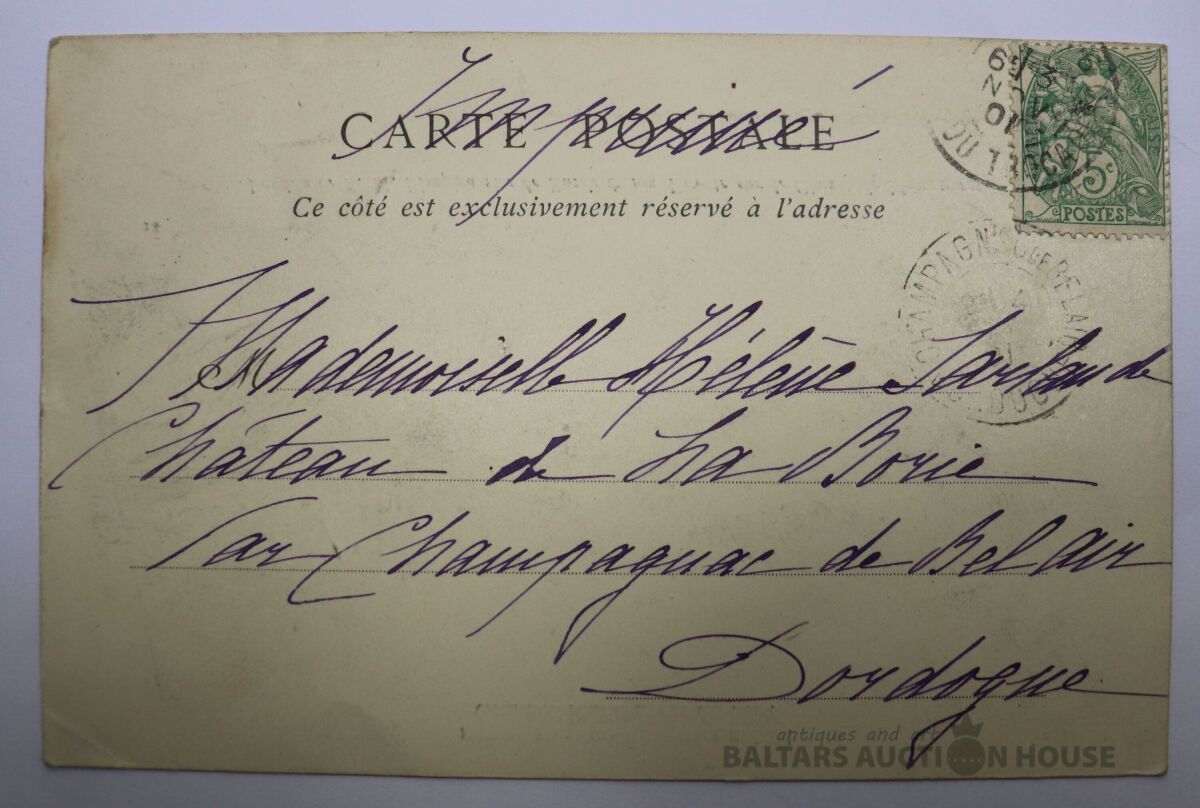 Imprimé
CARTE POSTALE
Ce côté est exclusivement réservé à l'adresse
5c
POSTES
01
DU TROCA
CHAMPAGNAC DE BELAIR
Mademoiselle Hélène Sarlande
Château de La Borie
Par Champagnac de Bel air
Dordogne
antiques and art
BALTARS AUCTION HOUSE